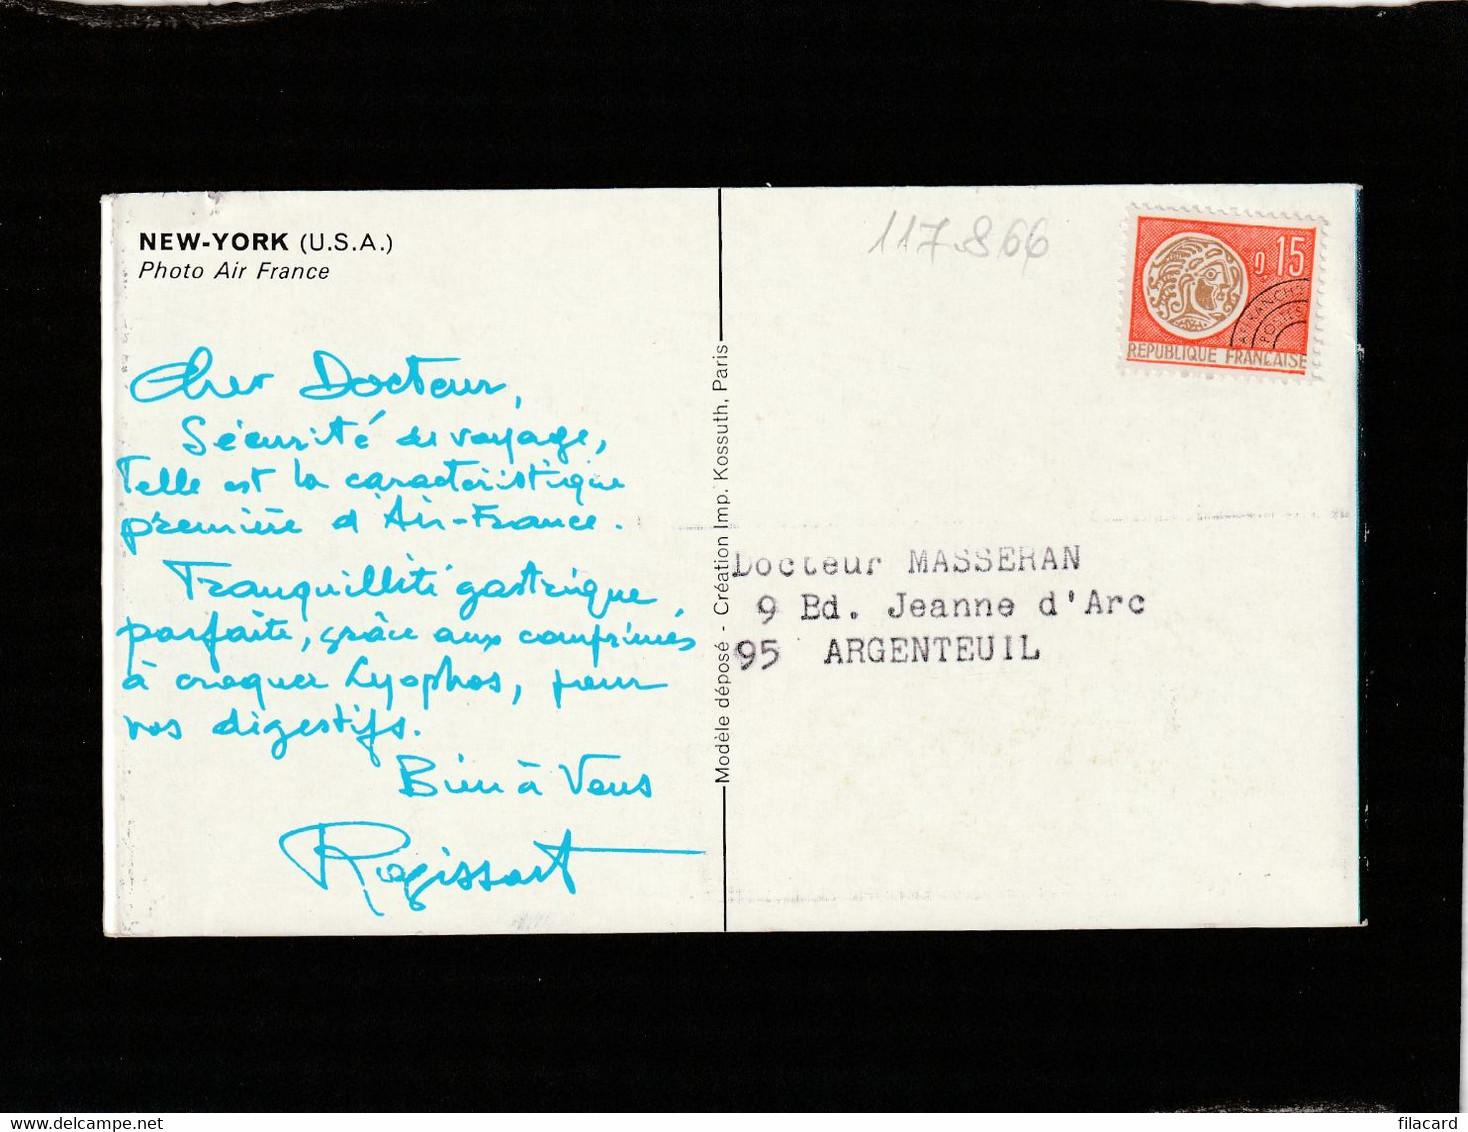 NEW-YORK (U.S.A.)
Photo Air France
Cher Docteur,
Sécurité du voyage,
Telle est la caractéristique
première d'Air-France.
Tranquillité gastrique
parfaite, grâce aux comprimés
à croquer Lyophos, pour
vos digestifs.
Bien à Vous
Regissart
Modèle déposé - Création Imp. Kossuth, Paris
117.866
0,15
AFFRANCHts
POSTES
REPUBLIQUE FRANÇAISE
Docteur MASSERAN
9 Bd. Jeanne d'Arc
95 ARGENTEUIL
filacard